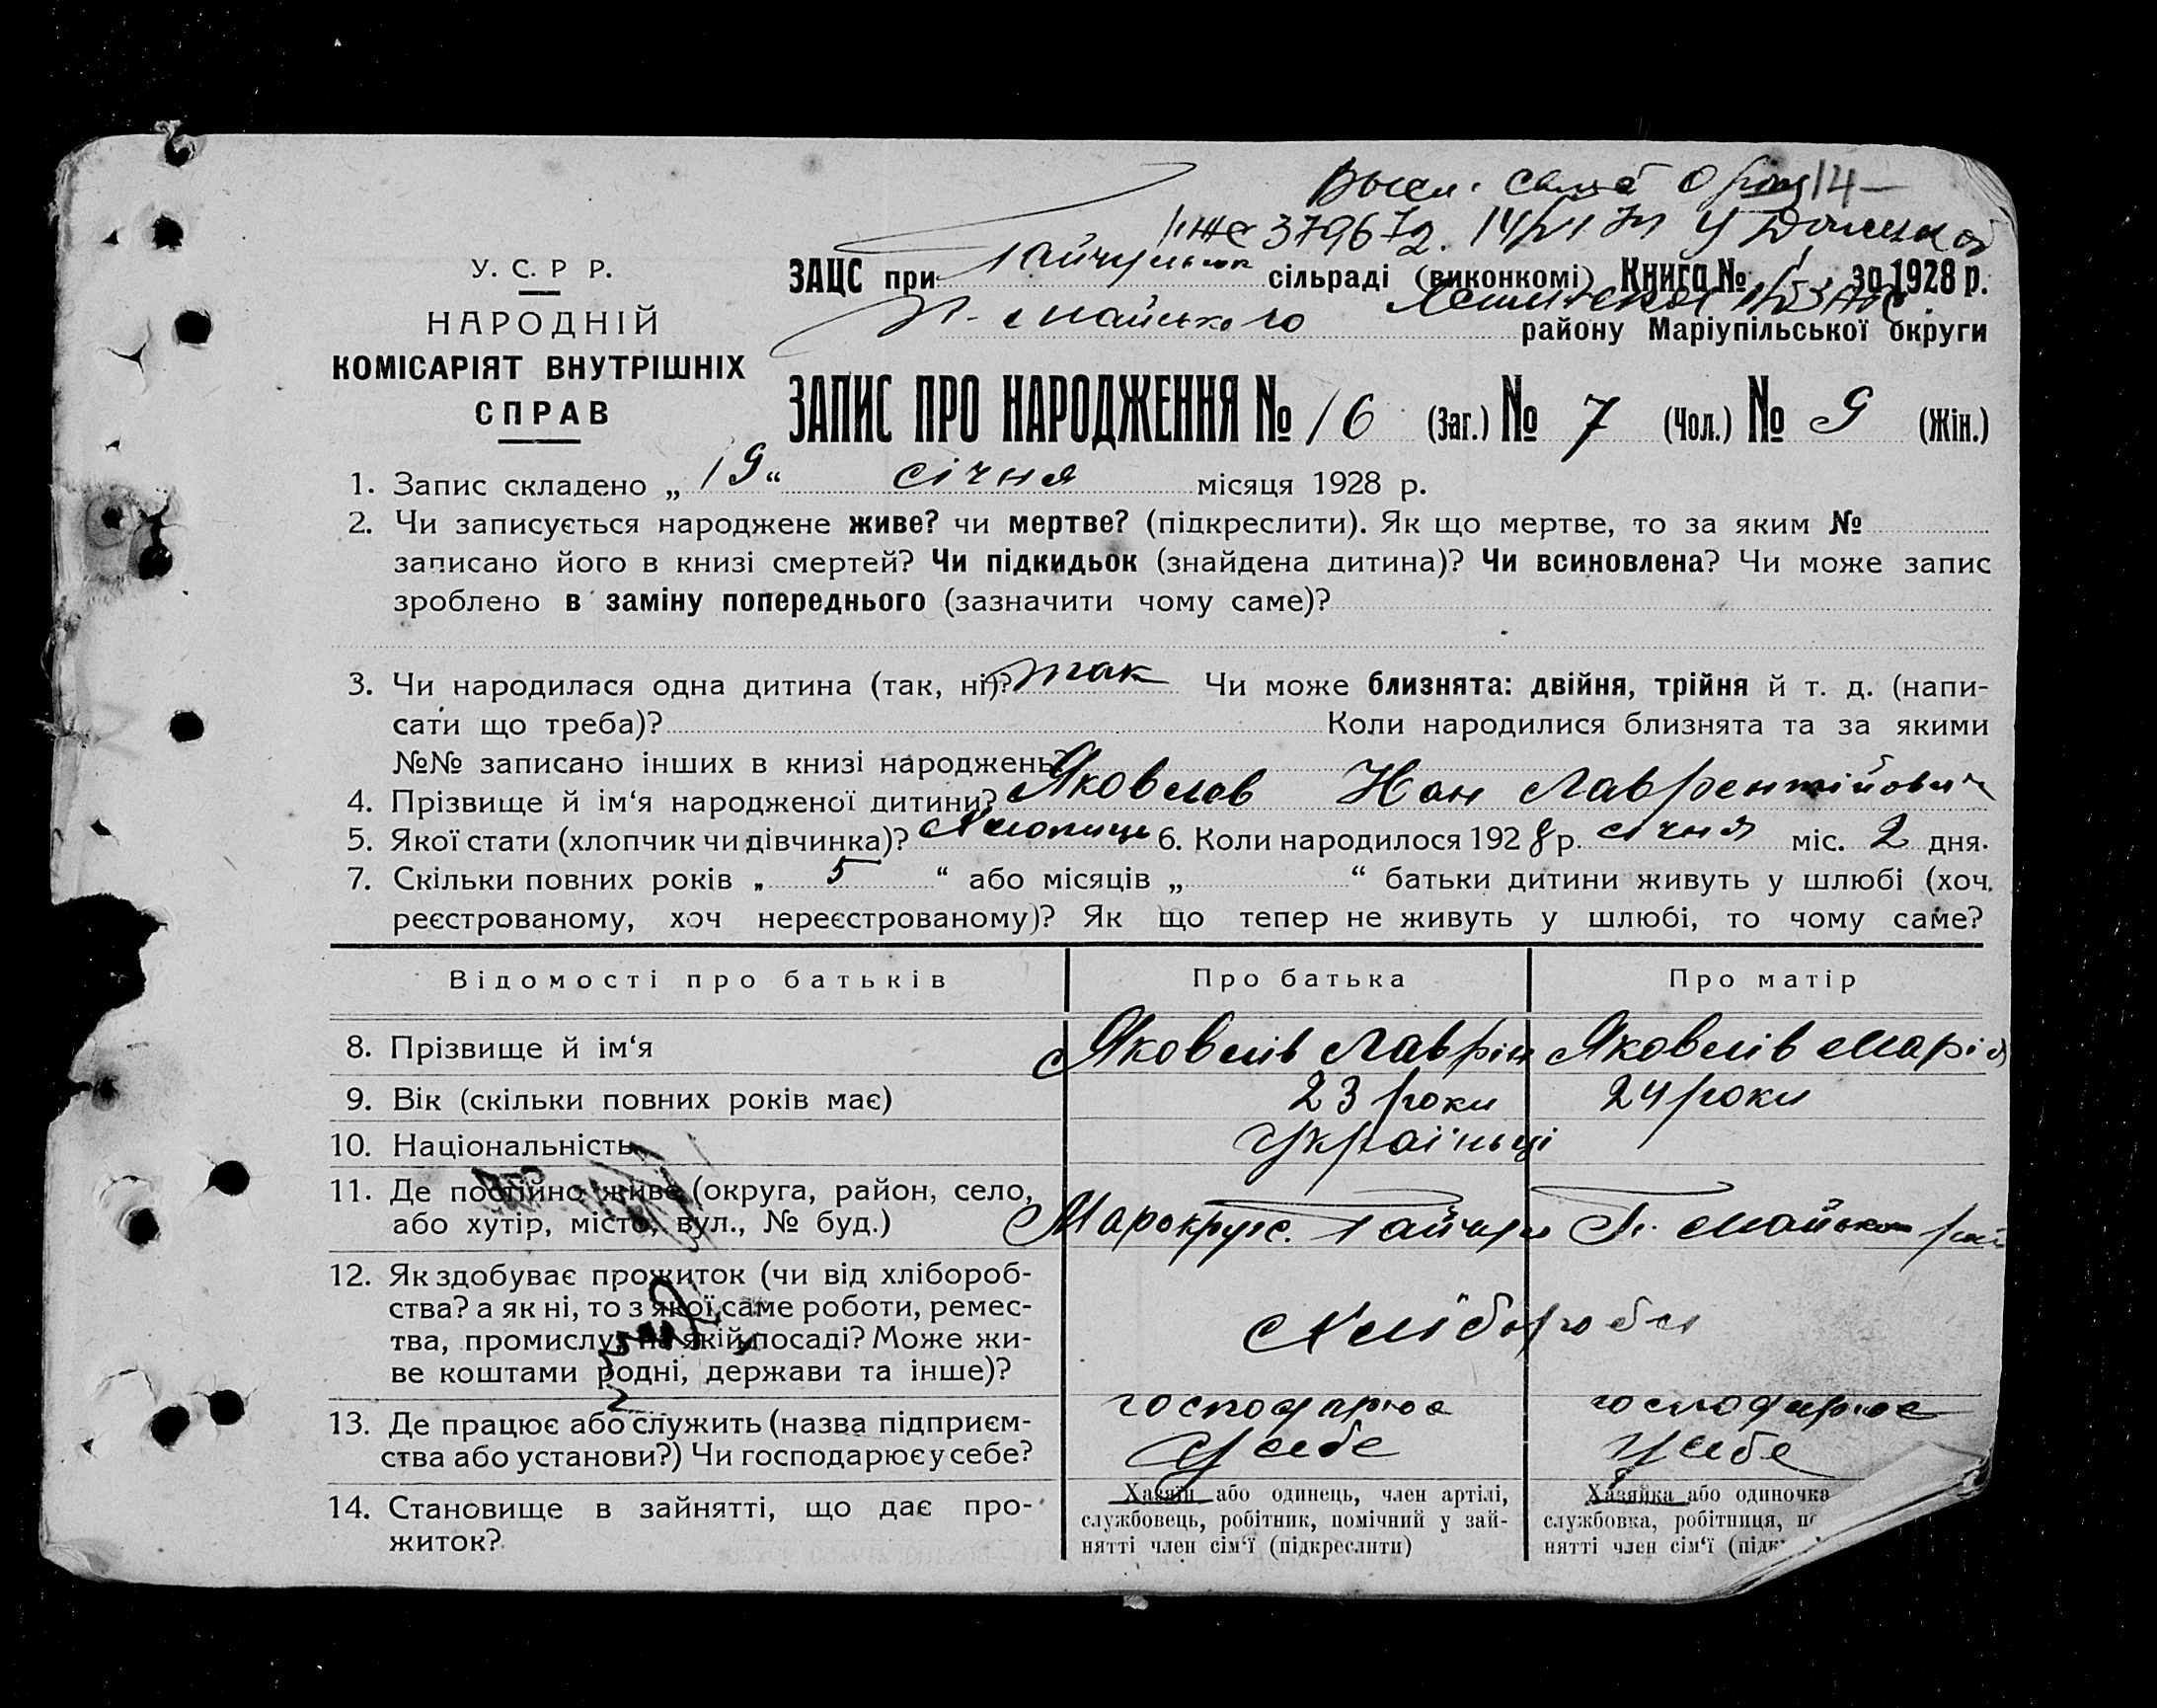 379672. у
У. С. Р Р.
НАРОДНІЙ
КОМІСАРІЯТ ВНУТРІШНІХ
СПРАВ
ЗАЦС при сільраді (виконкомі) Книга № 1 за 1928 р.
П. Майського району Маріупільської округи
ЗАПИС ПРО НАРОДЖЕННЯ № 16 (Заг.) № 7 (Чол.) № 9 (Жін.)
1. Запис складено „ 19 “ січня місяця 1928 р.
2. Чи записується народжене живе? чи мертве? (підкреслити). Як що мертве, то за яким №
записано його в книзі смертей? Чи підкидьок (знайдена дитина)? Чи всиновлена? Чи може запис
зроблено в заміну попереднього (зазначити чому саме)?
3. Чи народилася одна дитина (так, ні)? так Чи може близнята: двійня, трійня й т. д. (напи-
сати що треба)? Коли народилися близнята та за якими
№№ записано інших в книзі народжень?
4. Прізвище й ім‘я народженої дитини? Яковлев Лаврентійович
5. Якої стати (хлопчик чи дівчинка)? Хлопиць 6. Коли народилося 1928 р. січня міс. 2 дня.
7. Скільки повних років „ 5 “ або місяців „ “ батьки дитини живуть у шлюбі (хоч
реєстрованому, хоч нереєстрованому)? Як що тепер не живуть у шлюбі, то чому саме?
Відомості про батьків Про батька Про матір
8. Прізвище й ім‘я Яковлів Лаврін Яковлів Марія
9. Вік (скільки повних років має) 23 роки 24 роки
10. Національність Україньці
11. Де постійно живе (округа, район, село,
або хутір, місто, вул., № буд.) Гайчул П. Майського рай
12. Як здобуває прожиток (чи від хлібороб-
ства? а як ні, то з якої саме роботи, ремес-
тва, промислу, на якій посаді? Може жи-
ве коштами родні, держави та інше)? Хлібороби
13. Де працює або служить (назва підприєм-
ства або установи?) Чи господарює у себе? господарює у себе господарює у себе
14. Становище в зайнятті, що дає про-
житок?
Хазяїн або одинець, член артілі,
службовець, робітник, помічний у зай-
нятті член сім‘ї (підкреслити)
Хазяйка або одиночка
службовка, робітниця,
нятті член сім‘ї